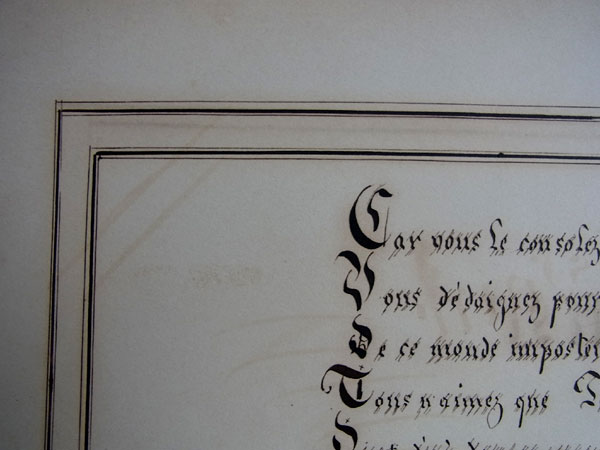 Car vous le consolez
Vous dédaignez pour
De ce monde imposteu
Vous n'aimez que